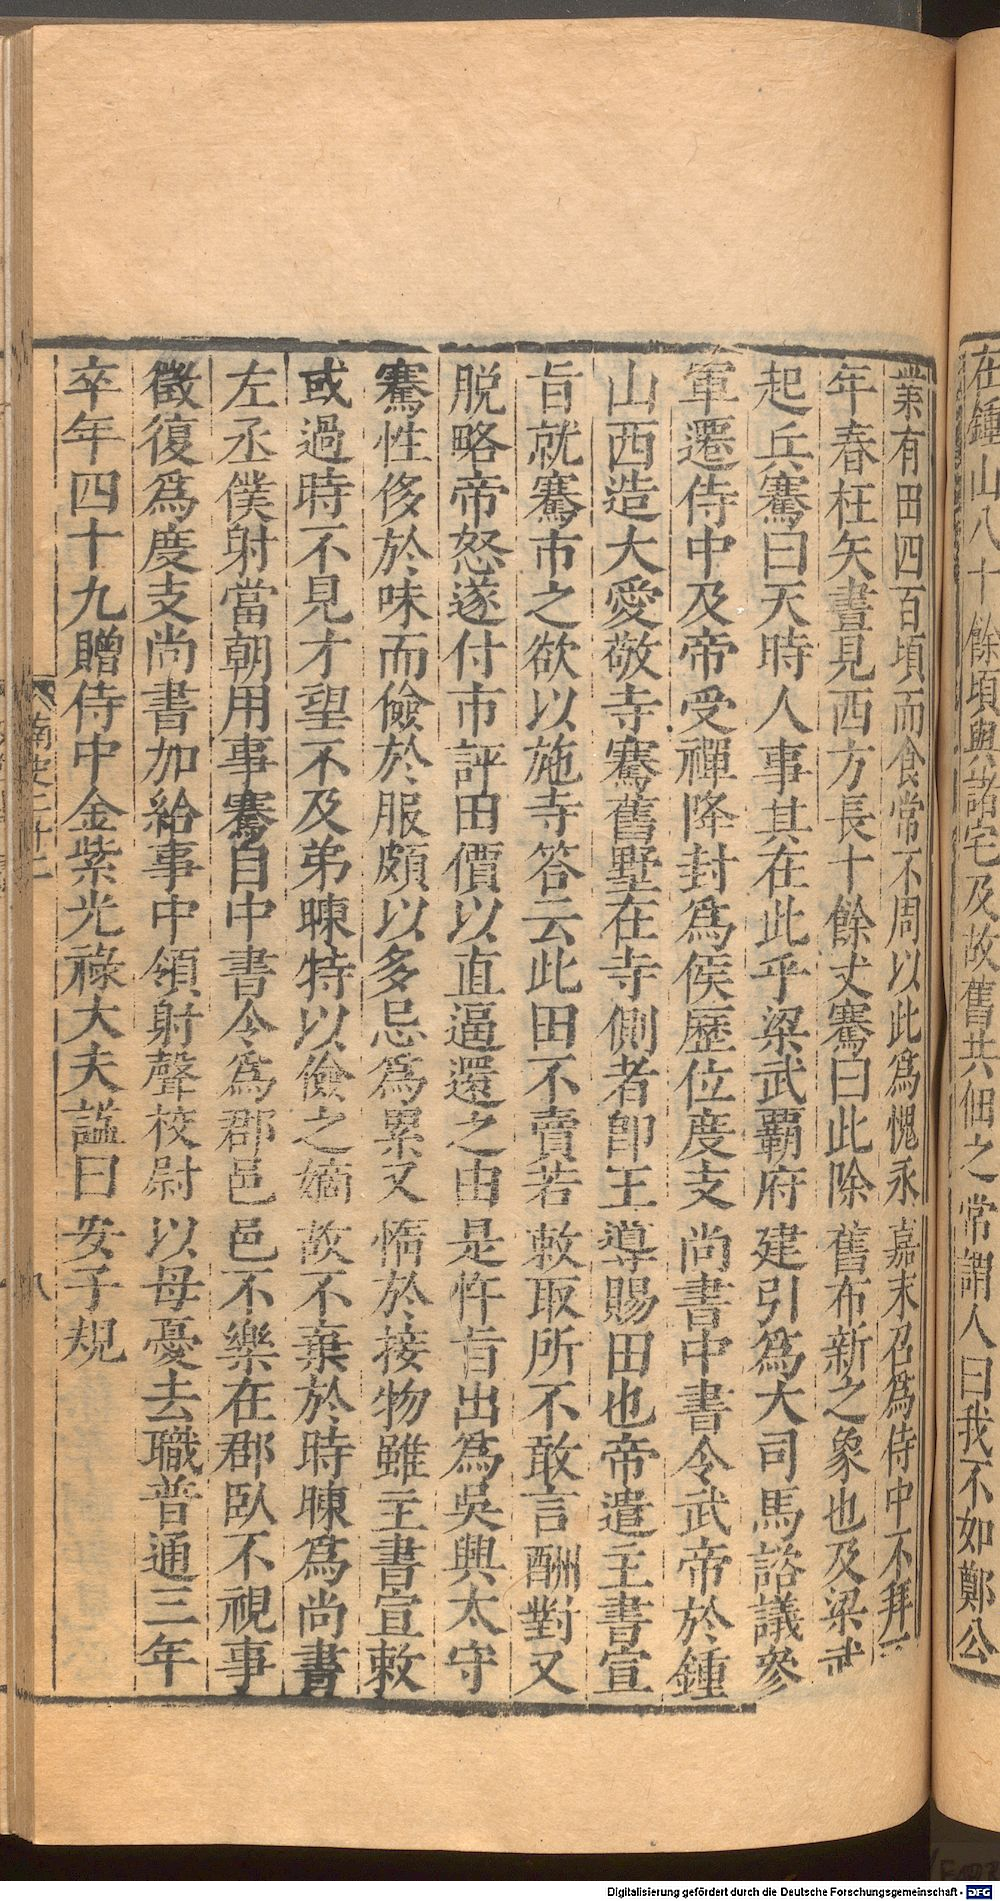 在鍾山八十餘頃與諸宅及故舊共佃之常謂人曰我不如鄭公
業有田四百頃而食常不周以此爲愧永嘉末召爲侍中不拜三
年春枉矢晝見西方長十餘丈騫曰此除舊布新之象也及梁武
起兵騫曰天時人事其在此乎梁武霸府建引爲大司馬諮議參
軍遷侍中及帝受禪降封爲侯歷位度支尚書中書令武帝於鍾
山西造大愛敬寺騫舊墅在寺側者卽王導賜田也帝遣主書宣
旨就騫市之欲以施寺答云此田不賣若敕取所不敢言酬對又
脱略帝怒遂付市評田價以直逼還之由是忤旨出爲吳興太守
騫性侈於味而儉於服頗以多忌爲累又惰於接物雖主書宣敕
或過時不見才望不及弟暕特以儉之嫡故不棄於時暕爲尚書
左丞僕射當朝用事騫自中書令爲郡邑邑不樂在郡臥不視事
徵復爲度支尚書加給事中領射聲校尉以母憂去職普通三年
卒年四十九贈侍中金紫光祿大夫謚曰安子規
南史二十二
八
Digitalisierung gefördert durch die Deutsche Forschungsgemeinschaft - DFG